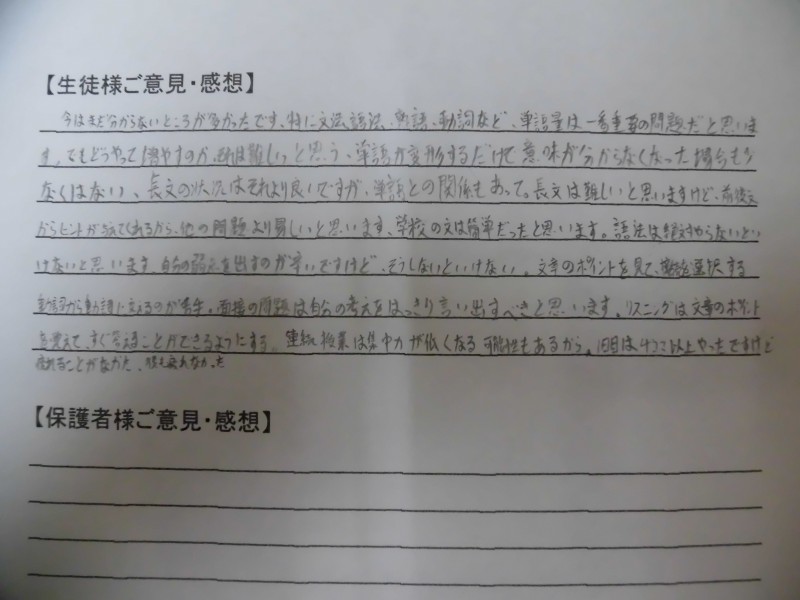 【生徒様ご意見・感想】
今はまだ分からないところが多かったです、特に文法、語法、熟語、動詞など、単語量は一番重要の問題だと思いま
す。でもどうやって増やすのか、それは難しいっと思う、単語が変形するだけで意味が分からなくなった場合も少
なくはない、長文の状況はそれより良いですが、単語との関係もあって。長文は難しいと思いますけど、前後文
からヒントが与えてくれるから、他の問題より易しいと思います、学校の文は簡単だったと思います。語法は絶対やらないとい
けないと思います、自分の弱点を出すのが辛いですけど、そうしないといけない。文章のポイントを見て、選択する
動詞に変えるのが苦手。面接の問題は自分の考えをはっきり言い出すべきと思います。リスニングは文章のポイント
を覚えて、すぐ答えることができるようにする。連続授業は集中力が低くなる可能性もあるから。1日目は4コマ以上やったですけど
疲れることがなかた、
【保護者様ご意見・感想】